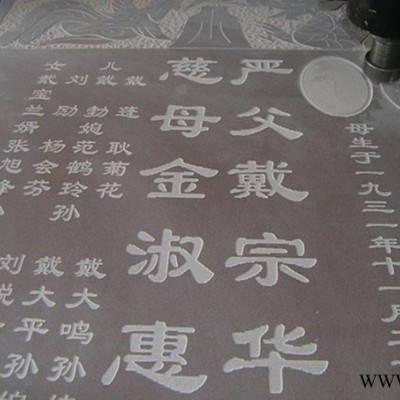 母生于一九三一年十一月二
严父戴宗华
慈母金淑惠
戴蓬 耿菊花
儿戴勃 媳范鹤玲
刘励 杨会芬
女戴宝兰 婿张旭
孙
戴大鸣孙
戴大平孙
刘悦
www.